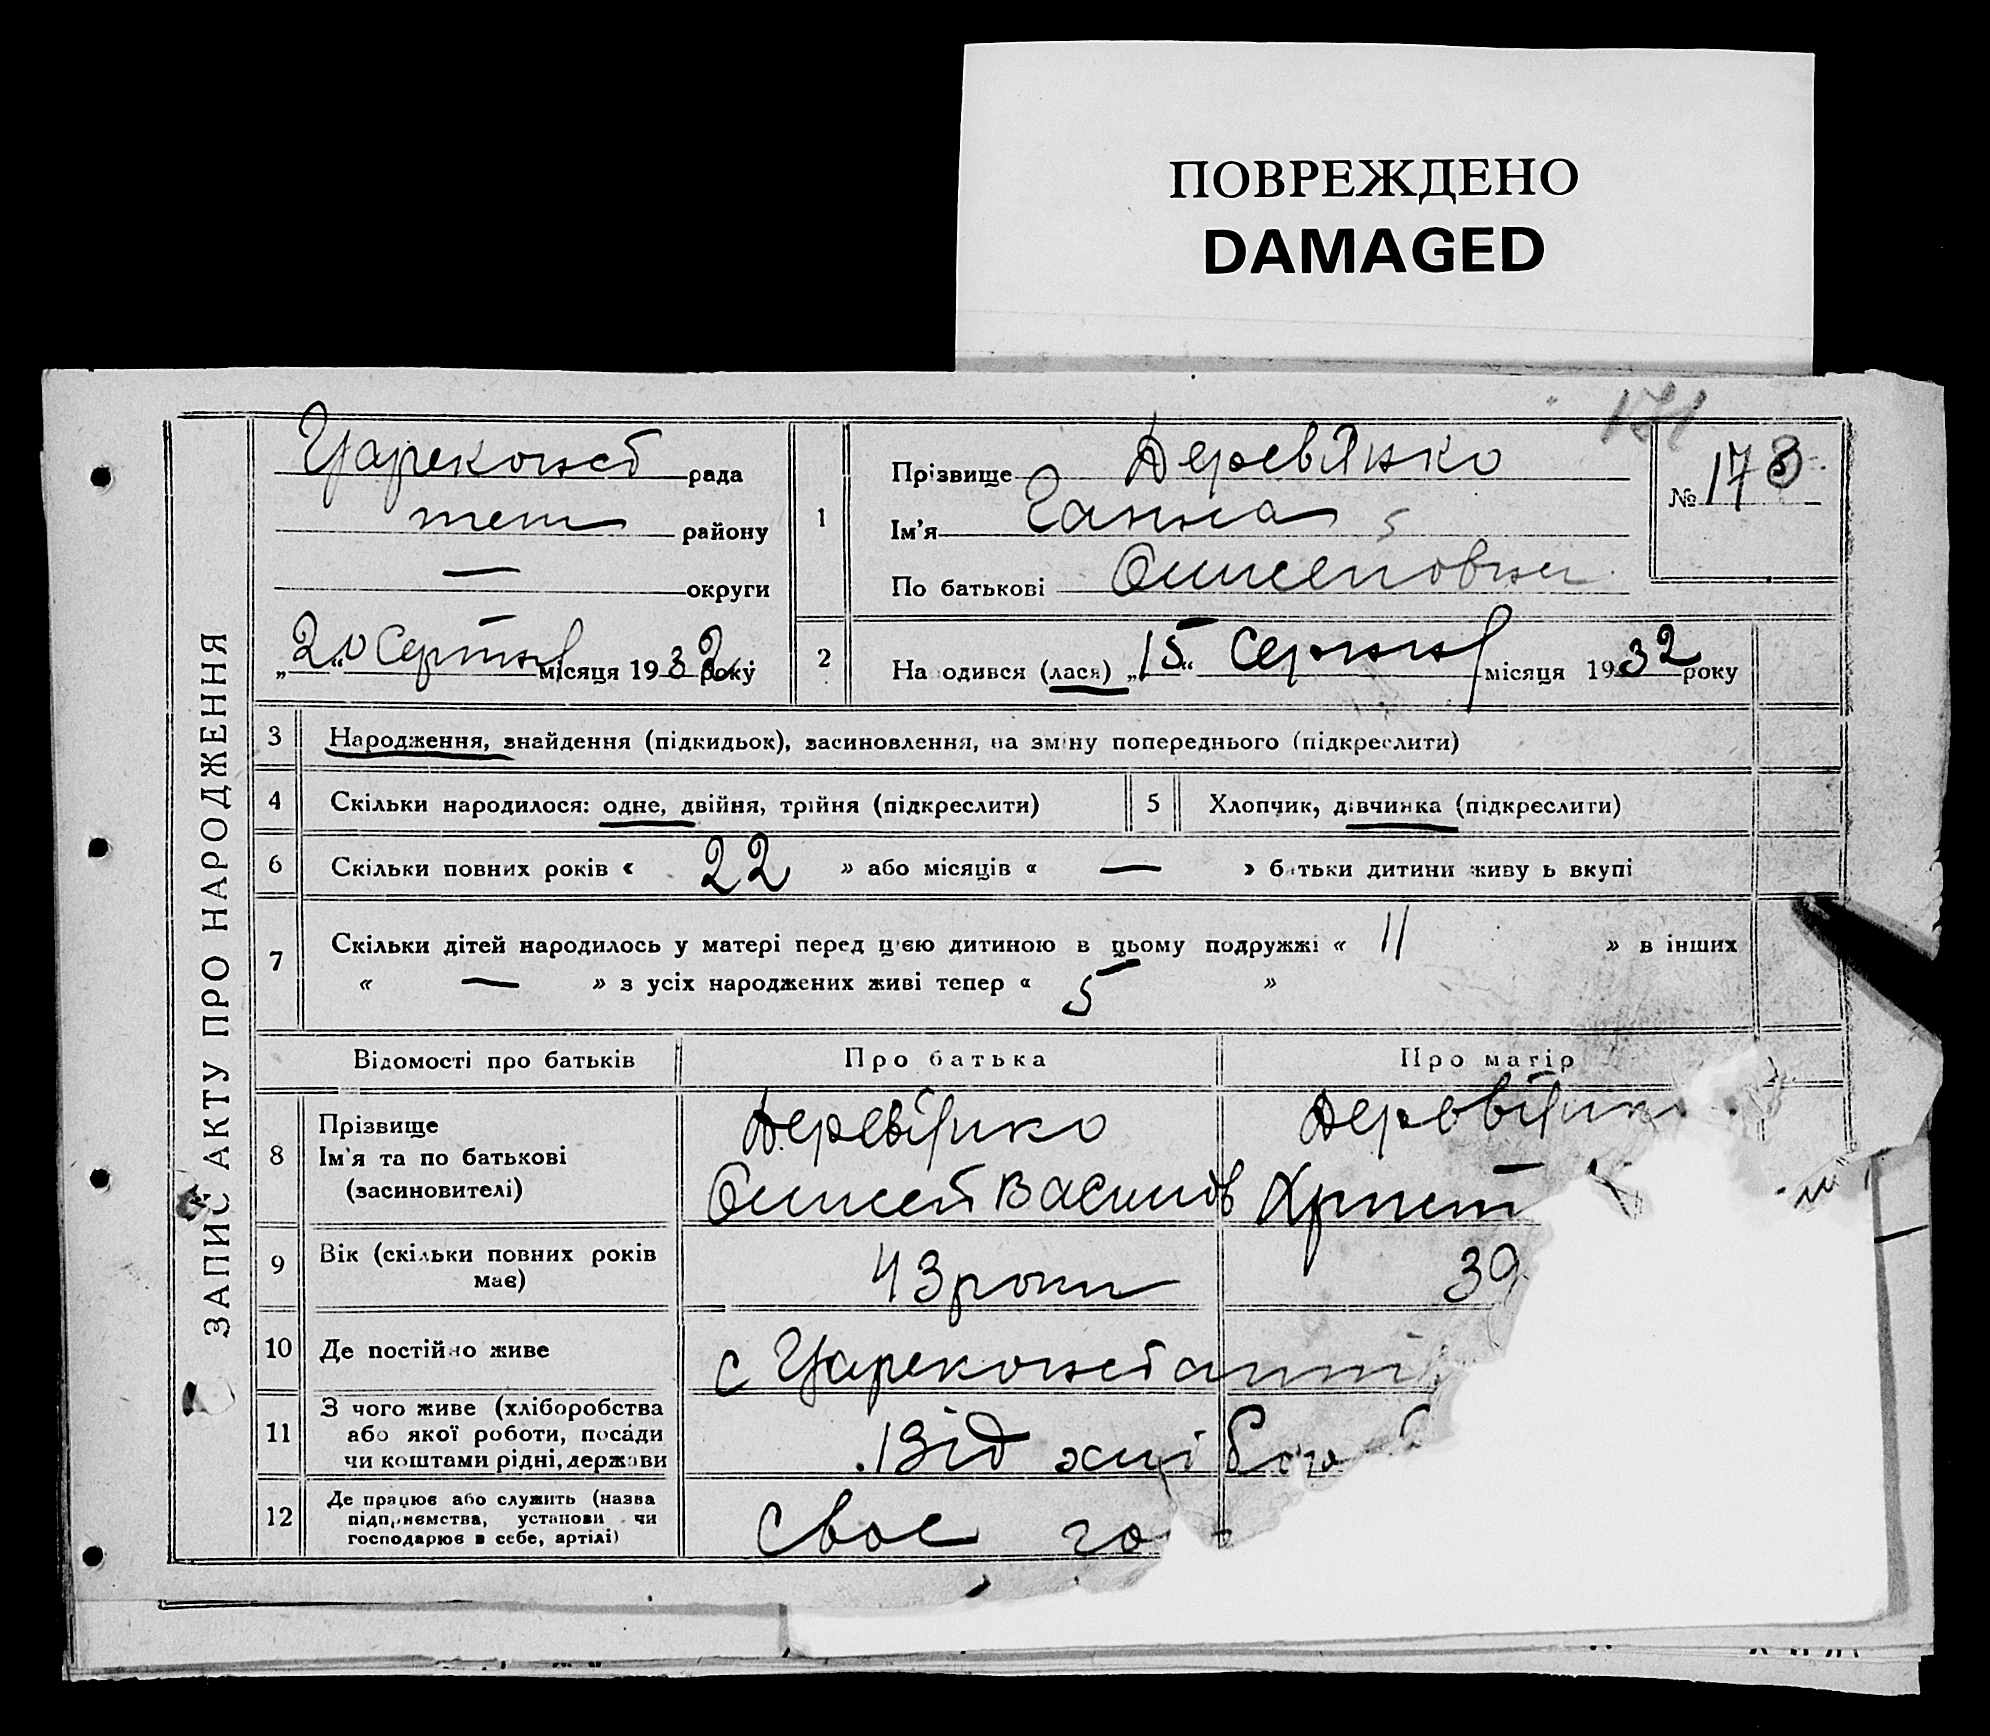 ПОВРЕЖДЕНО
DAMAGED
171
ЗАПИС АКТУ ПРО НАРОДЖЕННЯ
Цареконст рада
теж району
— округи
„20“ Серпня місяця 1932 року
1
Прізвище Деревянко
Ім'я Ганна
По батькові
№ 178
2
Народився (лася) „15“ Серпня місяця 1932 року
3 Народження, знайдення (підкидьок), засиновлення, на зміну попереднього (підкреслити)
4 Скільки народилося: одне, двійня, трійня (підкреслити)
5 Хлопчик, дівчинка (підкреслити)
6 Скільки повних років « 22 » або місяців « — » батьки дитини живуть вкупі
7 Скільки дітей народилось у матері перед цією дитиною в цьому подружжі « 11 » в інших
« — » з усіх народжених живі тепер « 5 »
Відомості про батьків
Про батька
Про матір
8 Прізвище
Ім'я та по батькові
(засиновителі)
Деревянко
Василів
Деревянк
Христ
9 Вік (скільки повних років
має)
43 роки
39
10 Де постійно живе
с Цареконстанті
11 З чого живе (хліборобства
або якої роботи, посади
чи коштами рідні, держави
Від хлібо
12 Де працює або служить (назва
підприємства, установи чи
господарює в себе, артілі)
своє го